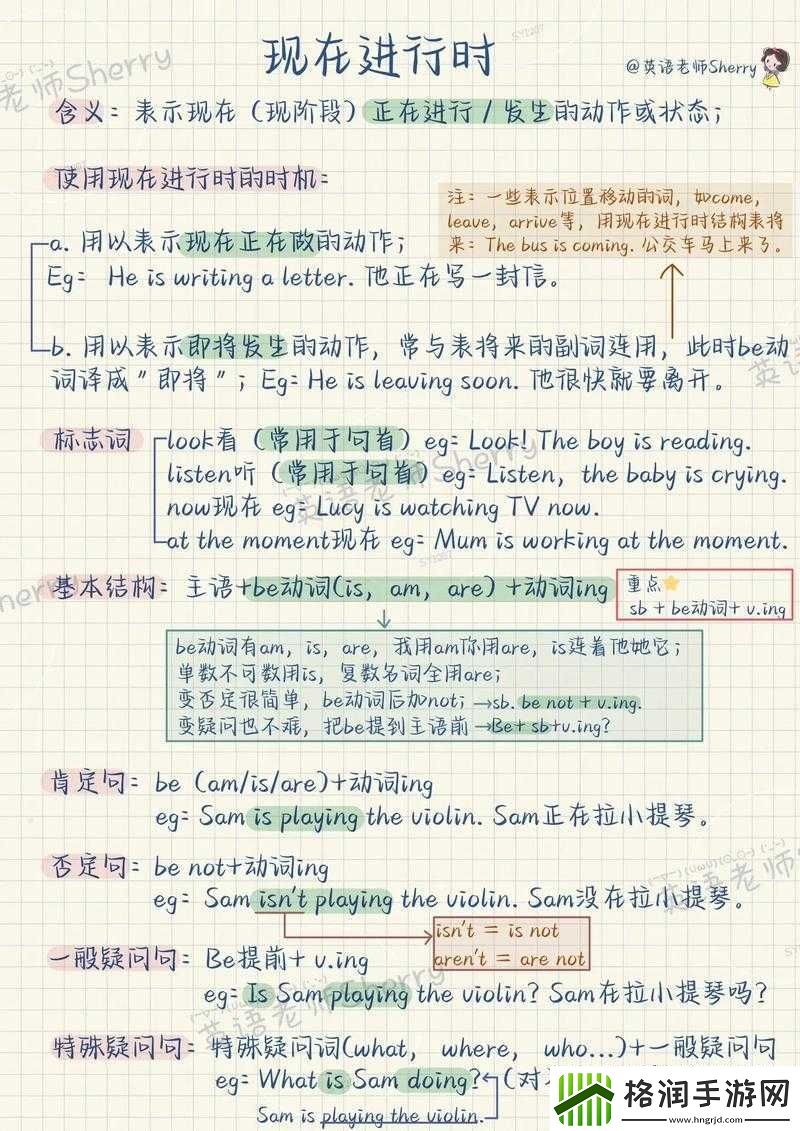 现在进行时
@英语老师Sherry
含义：表示现在（现阶段）正在进行/发生的动作或状态；
使用现在进行时的时机：
注：一些表示位置移动的词，如come，
leave，arrive等，用现在进行时结构表将
来：The bus is coming. 公交车马上来了。
a. 用以表示现在正在做的动作；
Eg： He is writing a letter. 他正在写一封信。
b. 用以表示即将发生的动作，常与表将来的副词连用，此时be动
词译成"即将"；Eg：He is leaving soon. 他很快就要离开。
标志词
look看（常用于句首）eg：Look! The boy is reading.
listen听（常用于句首）eg：Listen，the baby is crying.
now现在 eg：Lucy is watching TV now.
at the moment现在 eg：Mum is working at the moment.
基本结构：主语+be动词(is，am，are)+动词ing
重点
sb + be动词+ v.ing
be动词有am，is，are，我用am你用are，is连着他她它；
单数不可数用is，复数名词全用are；
变否定很简单，be动词后加not；→sb. be not + v.ing.
变疑问也不难，把be提到主语前→Be+ sb+v.ing?
肯定句：be（am/is/are)+动词ing
eg：Sam is playing the violin. Sam正在拉小提琴。
否定句：be not+动词ing
eg：Sam isn't playing the violin. Sam没在拉小提琴。
isn't = is not
aren't = are not
一般疑问句：Be提前+ v.ing
eg：Is Sam playing the violin? Sam在拉小提琴吗？
特殊疑问句：特殊疑问词(what，where，who...)+一般疑问句
eg：What is Sam doing?（对
Sam is playing the violin.
格润手游网
www.hngrjd.com
英语老师Sherry
英语老师Sherry
英语老师Sherry